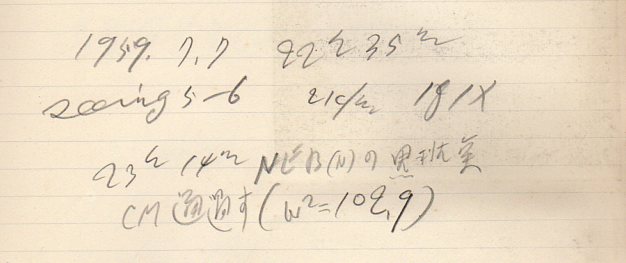 1959. 7. 7 22h 35m
seeing 5-6 21c/m 181X
23h 14m NEB(N)の黒斑実
CM通過す(ω²=102.9)